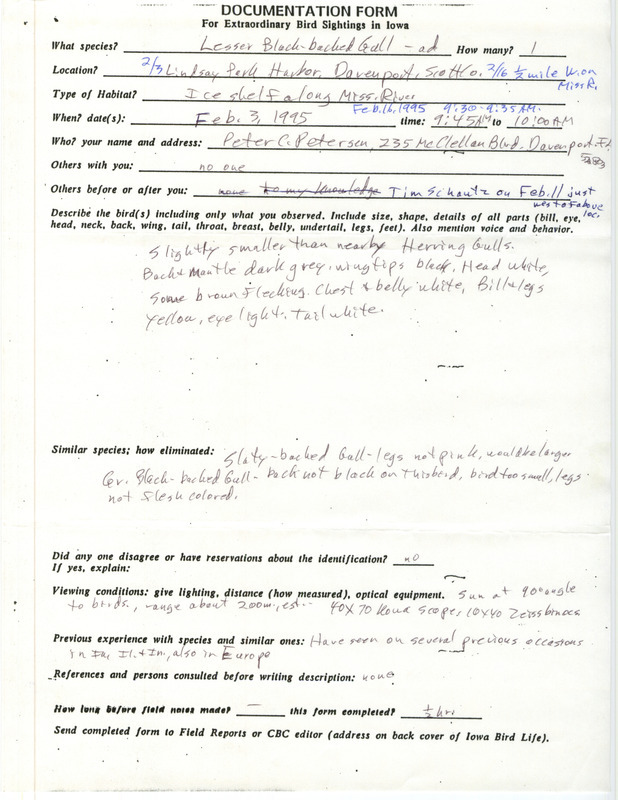 DOCUMENTATION FORM
For Extraordinary Bird Sightings in Iowa
What species? Lesser Black-backed Gull - ad How many? 1
Location? 2/3 Lindsay Park Harbor, Davenport, Scott Co. 2/16 1/2 mile W. on
Miss R.
Type of Habitat? Ice shelf along Miss. River
Feb. 16, 1995 9:30-9:35 AM.
When? date(s): Feb. 3, 1995 time: 9:45 AM to 10:00 AM
Who? your name and address: Peter C. Petersen, 235 McClellan Blvd. Davenport, Ia
Others with you: no one
Others before or after you: none to my knowledge Tim Schantz on Feb. 11 just
west of above
loc.
Describe the bird(s) including only what you observed. Include size, shape, details of all parts (bill, eye,
head, neck, back, wing, tail, throat, breast, belly, undertail, legs, feet). Also mention voice and behavior.
Slightly smaller than nearby Herring Gulls.
Back & Mantle dark grey, wingtips black, Head white,
some brown flecking. Chest & belly white, Bill & legs
yellow, eye light. Tail white.
Similar species; how eliminated: Slaty-backed Gull - legs not pink, would be larger
Gr. Black-backed Gull - back not black on this bird, bird too small, legs
not flesh colored.
Did any one disagree or have reservations about the identification? no
If yes, explain:
Viewing conditions: give lighting, distance (how measured), optical equipment. Sun at 90° angle
to birds, range about 200m, est. 40X70 Kowa Scope, 10X40 Zeiss binocs
Previous experience with species and similar ones: Have seen on several previous occasions
in Ia, Il. & In., also in Europe
References and persons consulted before writing description: none
How long before field notes made? — this form completed? 1/2 hr.
Send completed form to Field Reports or CBC editor (address on back cover of Iowa Bird Life).